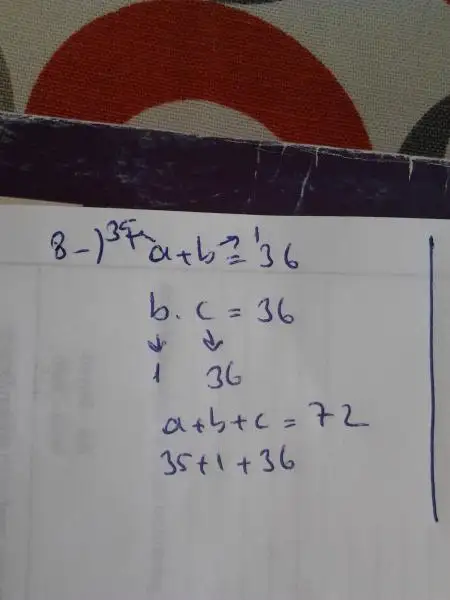 8-) 35← a+b→1 = 36
b. c = 36
↓ ↓
1 36
a+b+c = 72
35+1+36